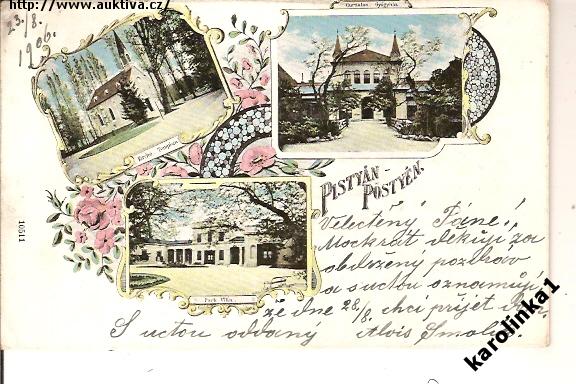 http://www.auktiva.cz/
23./8.
1906.
Cursalon. Gyógyterem
Kirche Templom
Park Villa
PISTYÁN-
PÖSTYÉN.
16511
Velectěný Pane!
Mockrát děkuji za
obdržený pozdrav
a s uctou oznamuji
že dne 28./8. chci přijet
S uctou oddaný Alois
karolinka1